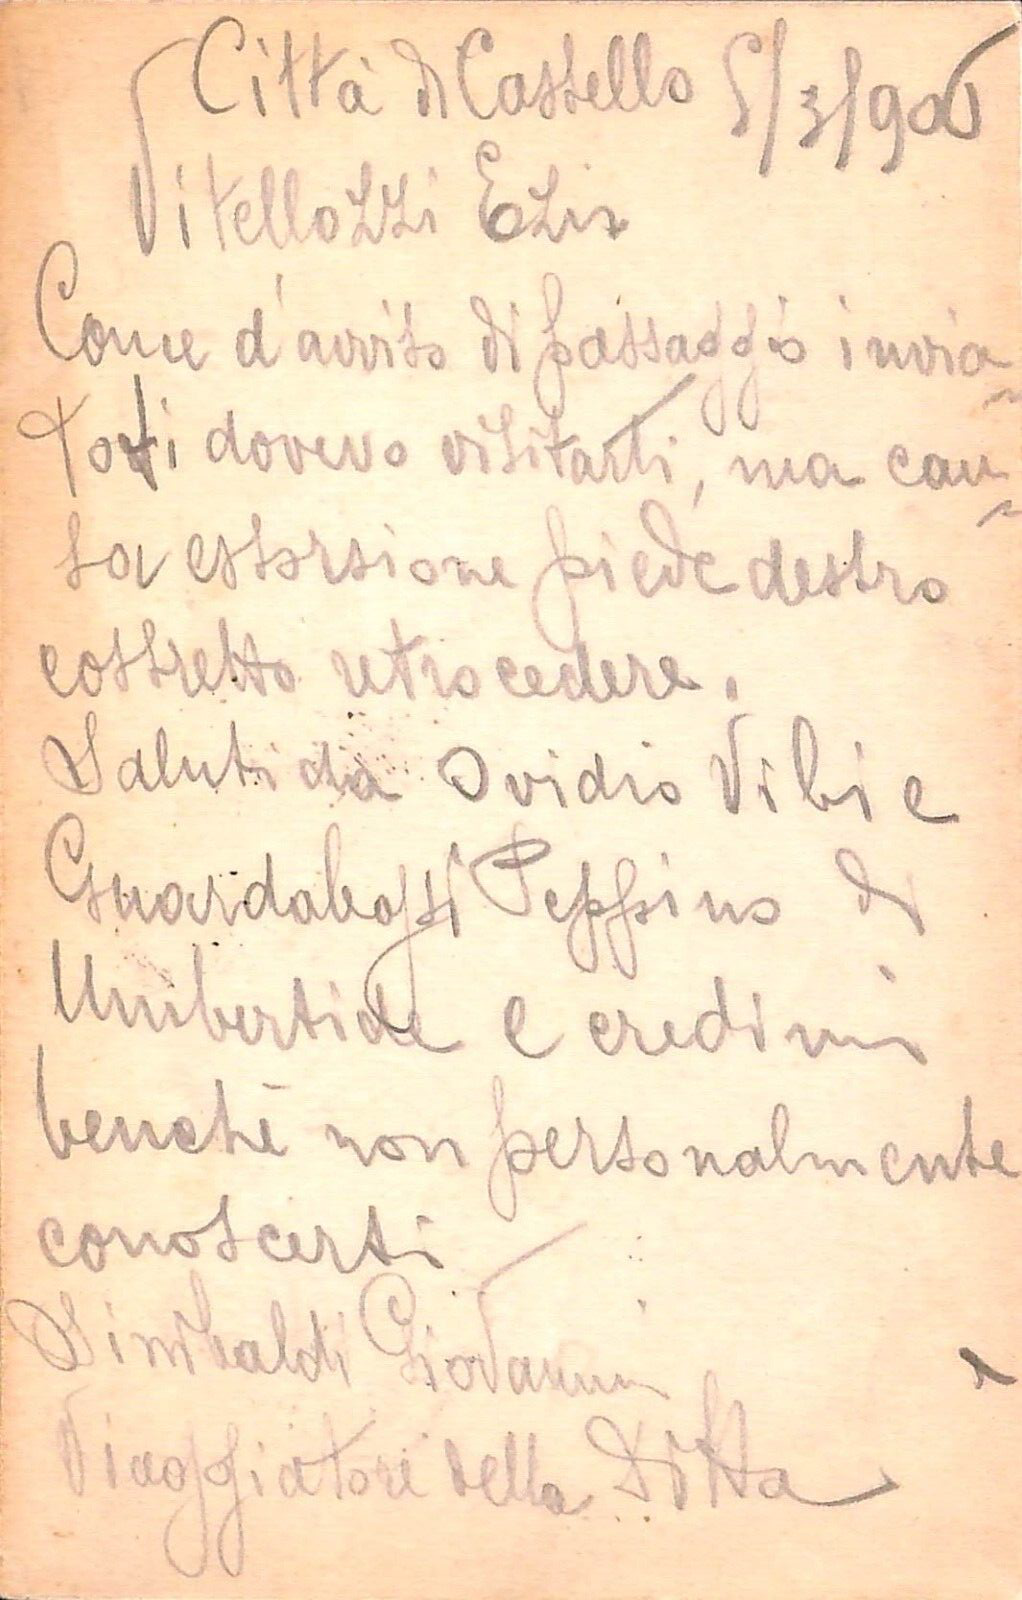 Città di Castello 5/3/900
Vitellozzi Ezix
Come d'avviso di passaggio invia=
toti dovevo visitarti, ma cau=
sa estorsione piede destro
costretto retrocedere.
Saluti da Ovidio Vibi e
Guardabassi Peppino di
Umbertide e credimi
benchè non personalmente
conoscerti
Sinibaldi Giovanni
Viaggiatore della Ditta